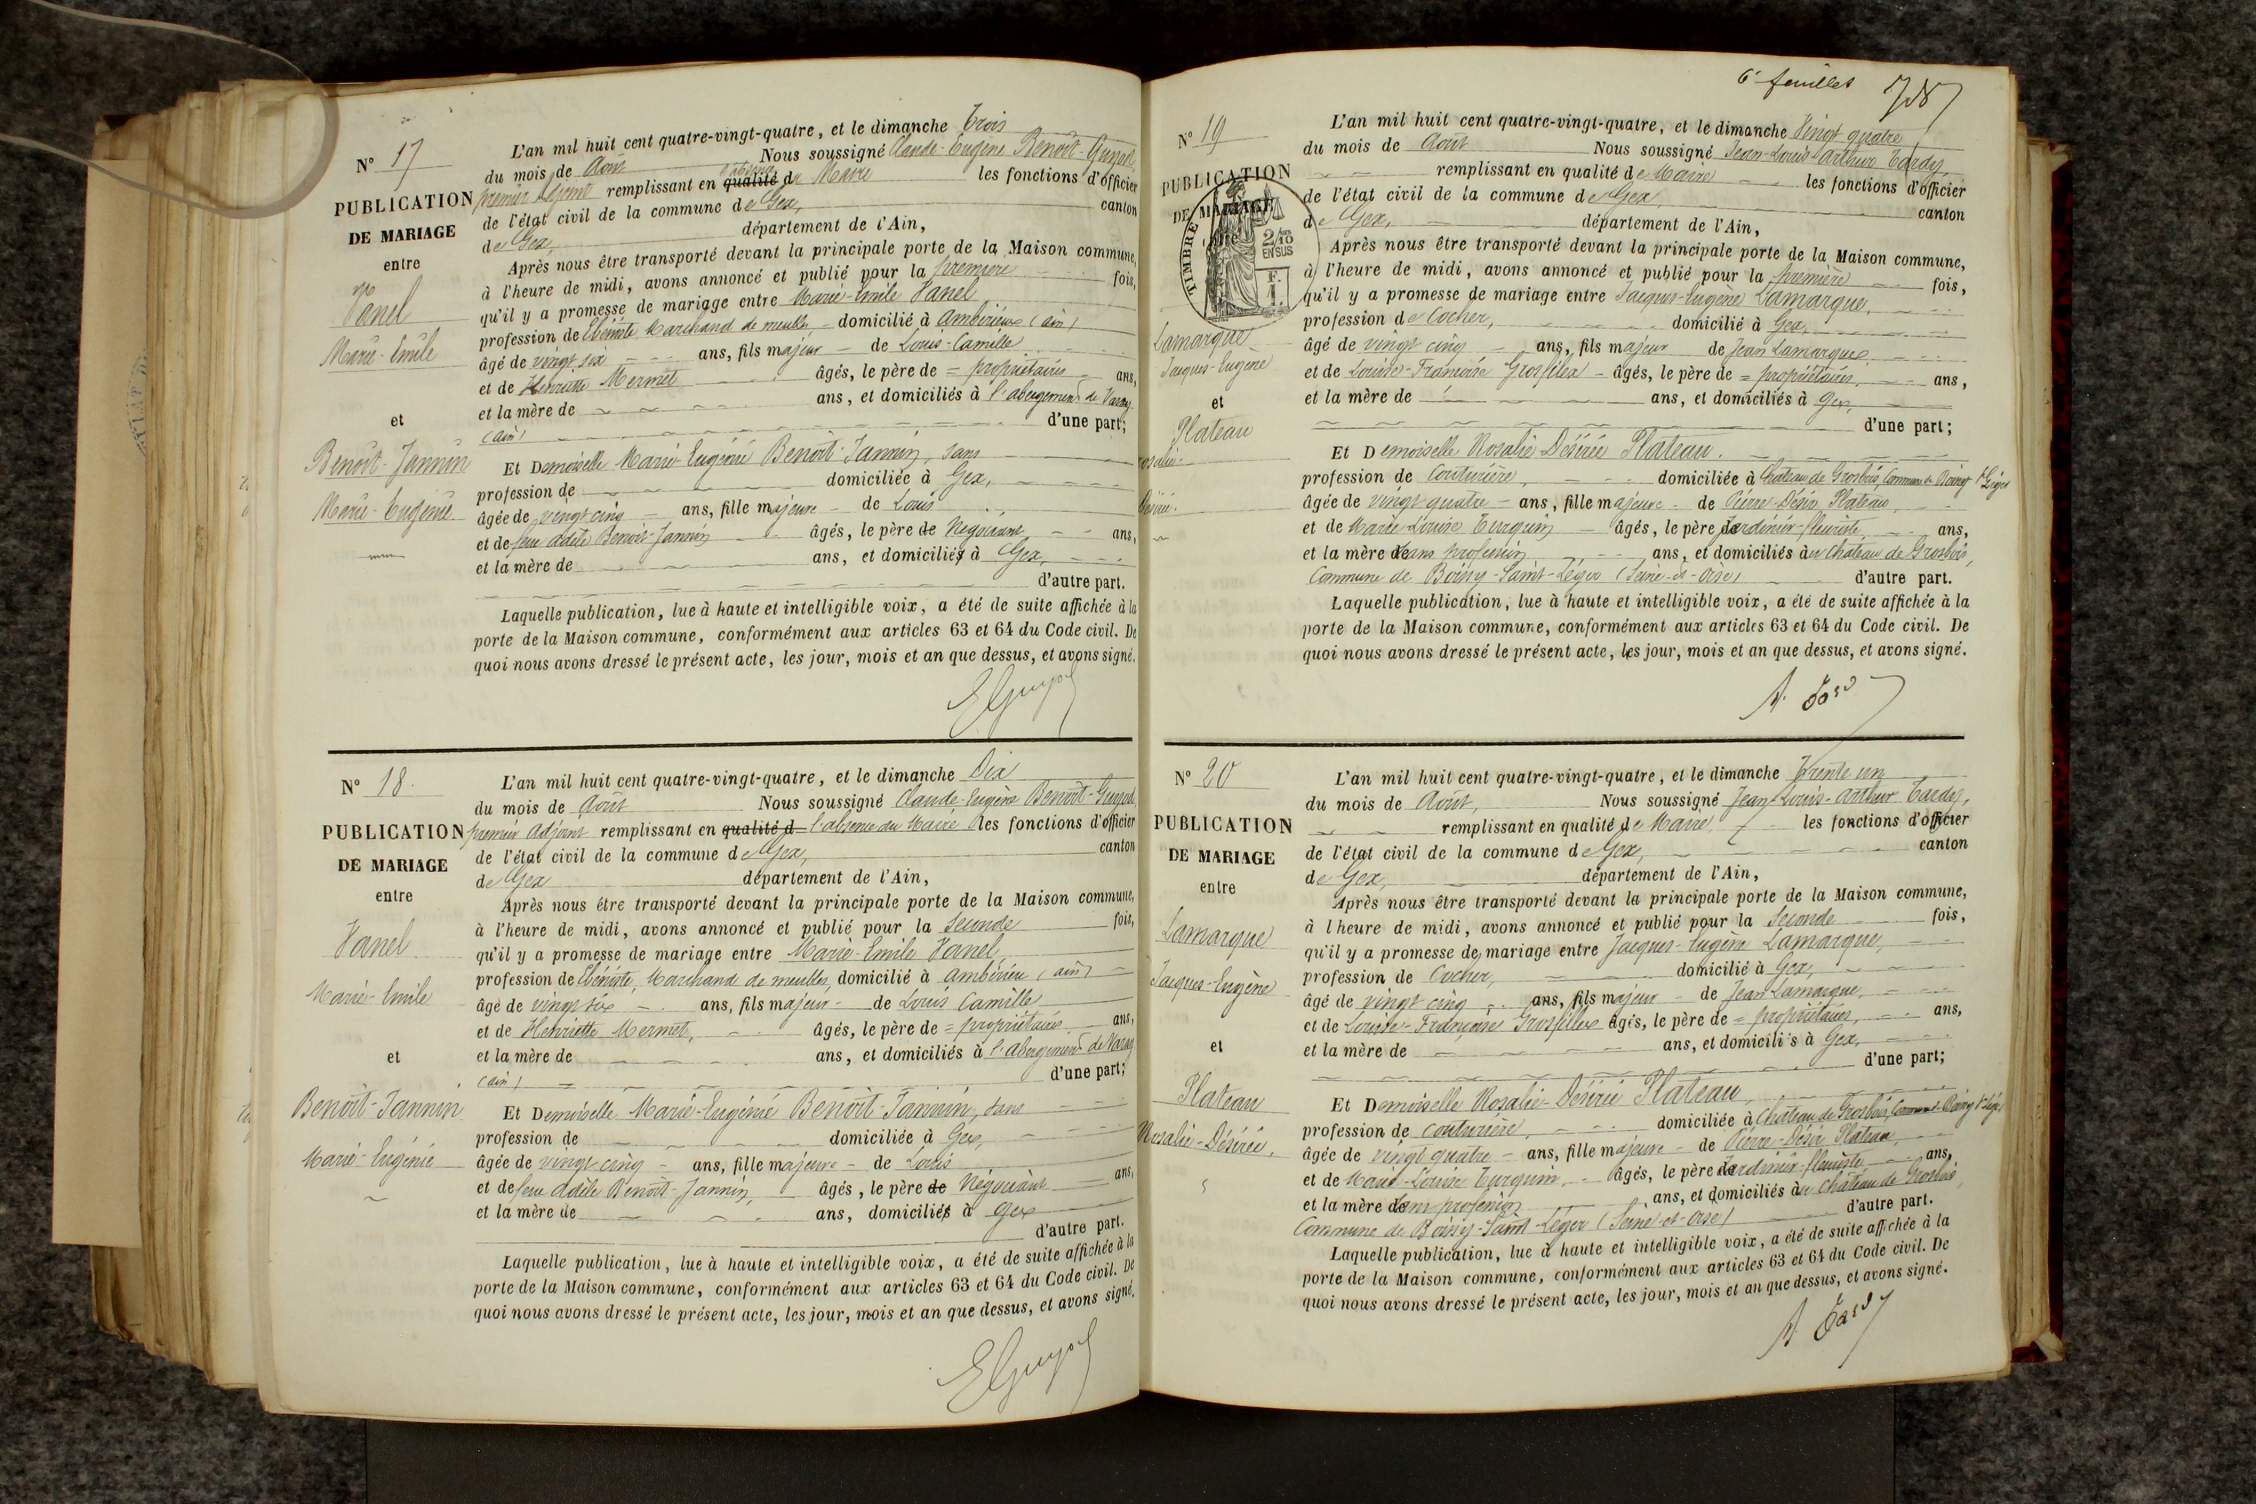 N° 17
PUBLICATION
DE MARIAGE
entre
Vanel
Marie-Emile
et
Benoît-Jannin
Marie-Eugénie
L'an mil huit cent quatre-vingt-quatre, et le dimanche Trois
du mois de Août Nous soussigné Claude-Eugène Benoît-Guyod,
premier adjoint remplissant en qualité d l'absence du Maire les fonctions d'officier
de l'état civil de la commune de Gex, canton
de Gex, département de l'Ain,
Après nous être transporté devant la principale porte de la Maison commune,
à l'heure de midi, avons annoncé et publié pour la première fois,
qu'il y a promesse de mariage entre Marie-Emile Vanel
profession de Ebéniste, Marchand de meubles domicilié à Ambérieu (ain)
âgé de vingt six ans, fils majeur de Louis-Camille
et de Henriette Mermet âgés, le père de = propriétaires ans,
et la mère de ans, et domiciliés à l'abergement de Varey
(ain) d'une part;
Et Demoiselle Marie-Eugénie Benoît-Jannin, sans
profession de domiciliée à Gex,
âgée de vingt cinq ans, fille majeure de Louis
et de feue Adèle Benoît-Jannin âgés, le père de Négociant ans,
et la mère de ans, et domiciliés à Gex,
d'autre part.
Laquelle publication, lue à haute et intelligible voix, a été de suite affichée à la
porte de la Maison commune, conformément aux articles 63 et 64 du Code civil. De
quoi nous avons dressé le présent acte, les jour, mois et an que dessus, et avons signé.
EGuyod
N° 18.
PUBLICATION
DE MARIAGE
entre
Vanel
Marie-Emile
et
Benoît-Jannin
Marie-Eugénie
L'an mil huit cent quatre-vingt-quatre, et le dimanche Dix
du mois de Août Nous soussigné Claude-Eugène Benoît-Guyod,
premier adjoint remplissant en qualité d l'absence du Maire les fonctions d'officier
de l'état civil de la commune de Gex, canton
de Gex département de l'Ain,
Après nous être transporté devant la principale porte de la Maison commune,
à l'heure de midi, avons annoncé et publié pour la seconde fois,
qu'il y a promesse de mariage entre Marie-Emile Vanel,
profession de Ebéniste, Marchand de meubles, domicilié à Ambérieu (ain)
âgé de vingt six ans, fils majeur de Louis Camille
et de Henriette Mermet, âgés, le père de = propriétaires ans,
et la mère de ans, et domiciliés à l'abergement de Varey
(ain) d'une part;
Et Demoiselle Marie-Eugénie Benoît-Jannin, sans
profession de domiciliée à Gex,
âgée de vingt cinq ans, fille majeure de Louis
et de feue Adèle Benoît-Jannin, âgés, le père de Négociant ans,
et la mère de ans, domiciliés à Gex
d'autre part.
Laquelle publication, lue à haute et intelligible voix, a été de suite affichée à la
porte de la Maison commune, conformément aux articles 63 et 64 du Code civil. De
quoi nous avons dressé le présent acte, les jour, mois et an que dessus, et avons signé.
EGuyod
6e feuillet
N° 19
PUBLICATION
DE MARIAGE
TIMBRE
2/10
EN SUS
F.
1.
Lamarque
Jacques-Eugène
et
Plateau
rosalie-
Désirée.
L'an mil huit cent quatre-vingt-quatre, et le dimanche Vingt quatre
du mois de Août Nous soussigné Jean-Louis-Arthur Tardy,
remplissant en qualité de Maire les fonctions d'officier
de l'état civil de la commune de Gex canton
de Gex, département de l'Ain,
Après nous être transporté devant la principale porte de la Maison commune,
à l'heure de midi, avons annoncé et publié pour la première fois,
qu'il y a promesse de mariage entre Jacques-Eugène Lamarque,
profession de Cocher, domicilié à Gex,
âgé de vingt cinq ans, fils majeur de Jean Lamarque
et de Louise-Françoise Grosfilex âgés, le père de = propriétaires, ans,
et la mère de ans, et domiciliés à Gex,
d'une part;
Et Demoiselle Rosalie-Désirée Plateau.
profession de Couturière, domiciliée à Château de Grosbois, Commune de Boissy St Léger
âgée de vingt quatre ans, fille majeure de Pierre-Désir Plateau,
et de Marie-Louise Turquin âgés, le père Jardinier-fleuriste ans,
et la mère sans profession ans, et domiciliés au Château de Grosbois,
Commune de Boissy-Saint-Léger (Seine-et-Oise) d'autre part.
Laquelle publication, lue à haute et intelligible voix, a été de suite affichée à la
porte de la Maison commune, conformément aux articles 63 et 64 du Code civil. De
quoi nous avons dressé le présent acte, les jour, mois et an que dessus, et avons signé.
A. Tardy
N° 20
PUBLICATION
DE MARIAGE
entre
Lamarque
Jacques-Eugène
et
Plateau
Rosalie-Désirée.
L'an mil huit cent quatre-vingt-quatre, et le dimanche Trente un
du mois de Août, Nous soussigné Jean-Louis-Arthur Tardy,
remplissant en qualité de Maire les fonctions d'officier
de l'état civil de la commune de Gex, canton
de Gex, département de l'Ain,
Après nous être transporté devant la principale porte de la Maison commune,
à l'heure de midi, avons annoncé et publié pour la Seconde fois,
qu'il y a promesse de mariage entre Jacques-Eugène Lamarque,
profession de Cocher, domicilié à Gex,
âgé de vingt cinq ans, fils majeur de Jean Lamarque,
et de Louise-Françoise Grosfillex âgés, le père de = propriétaires, ans,
et la mère de ans, et domiciliés à Gex,
d'une part;
Et Demoiselle Rosalie-Désirée Plateau,
profession de couturière, domiciliée à Château de Grosbois, Commune Boissy St Léger
âgée de vingt quatre ans, fille majeure de Pierre-Désir Plateau,
et de Marie-Louise Turquin, âgés, le père Jardinier-fleuriste ans,
et la mère sans profession ans, et domiciliés au Château de Grosbois,
Commune de Boissy-Saint-Léger (Seine-et-Oise) d'autre part.
Laquelle publication, lue à haute et intelligible voix, a été de suite affichée à la
porte de la Maison commune, conformément aux articles 63 et 64 du Code civil. De
quoi nous avons dressé le présent acte, les jour, mois et an que dessus, et avons signé.
A. Tardy